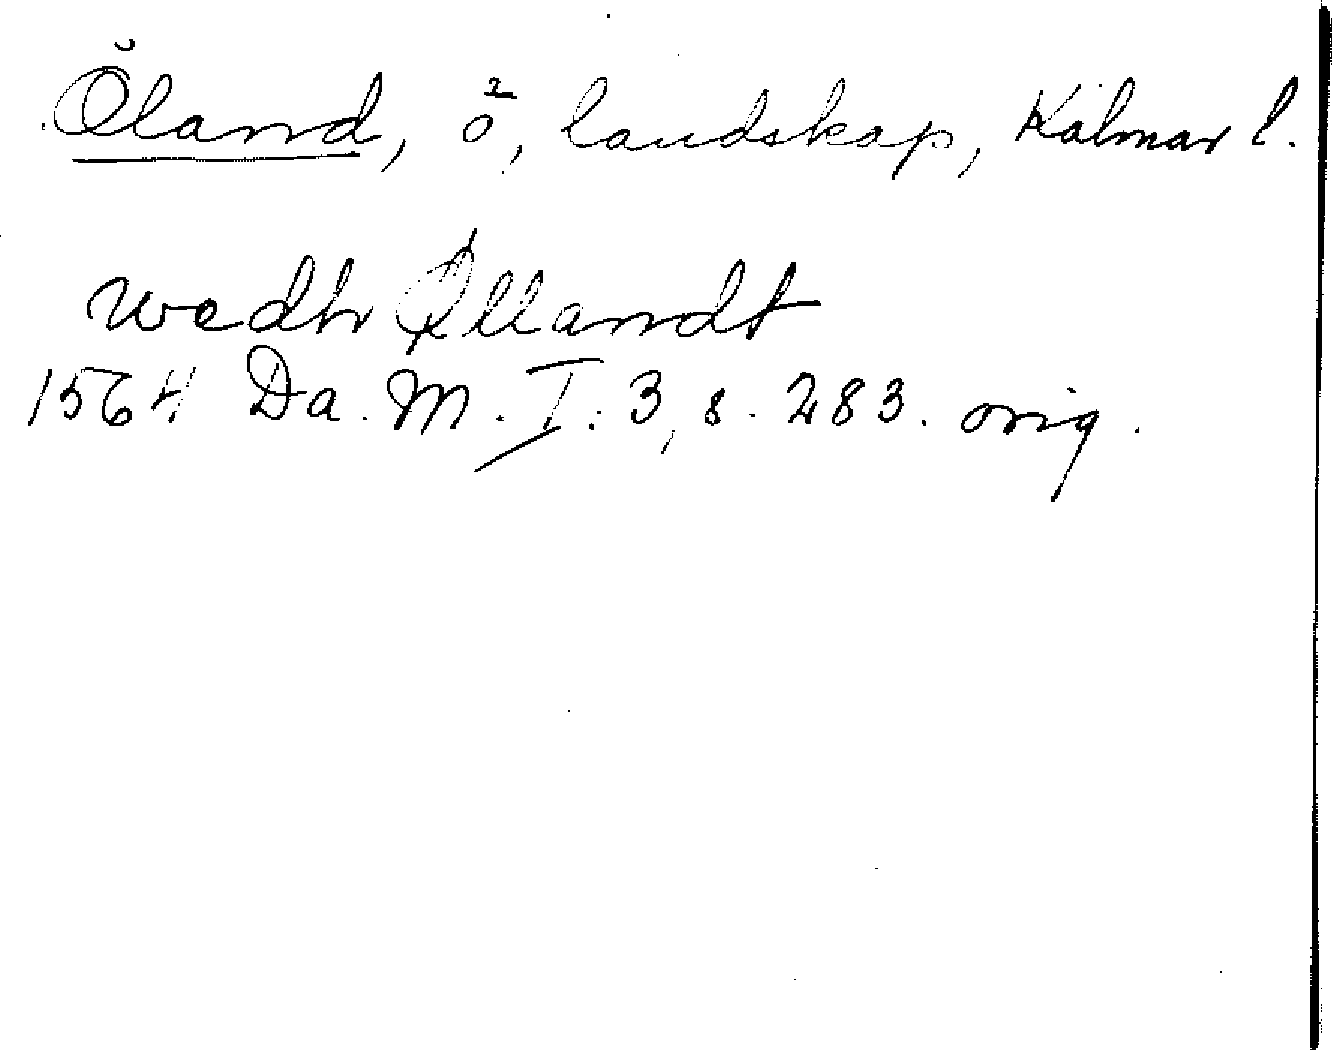 Öland, ö, landskap, Kalmar l.
wedh Øllandt
1564 Da. M. I: 3, s. 283. orig.